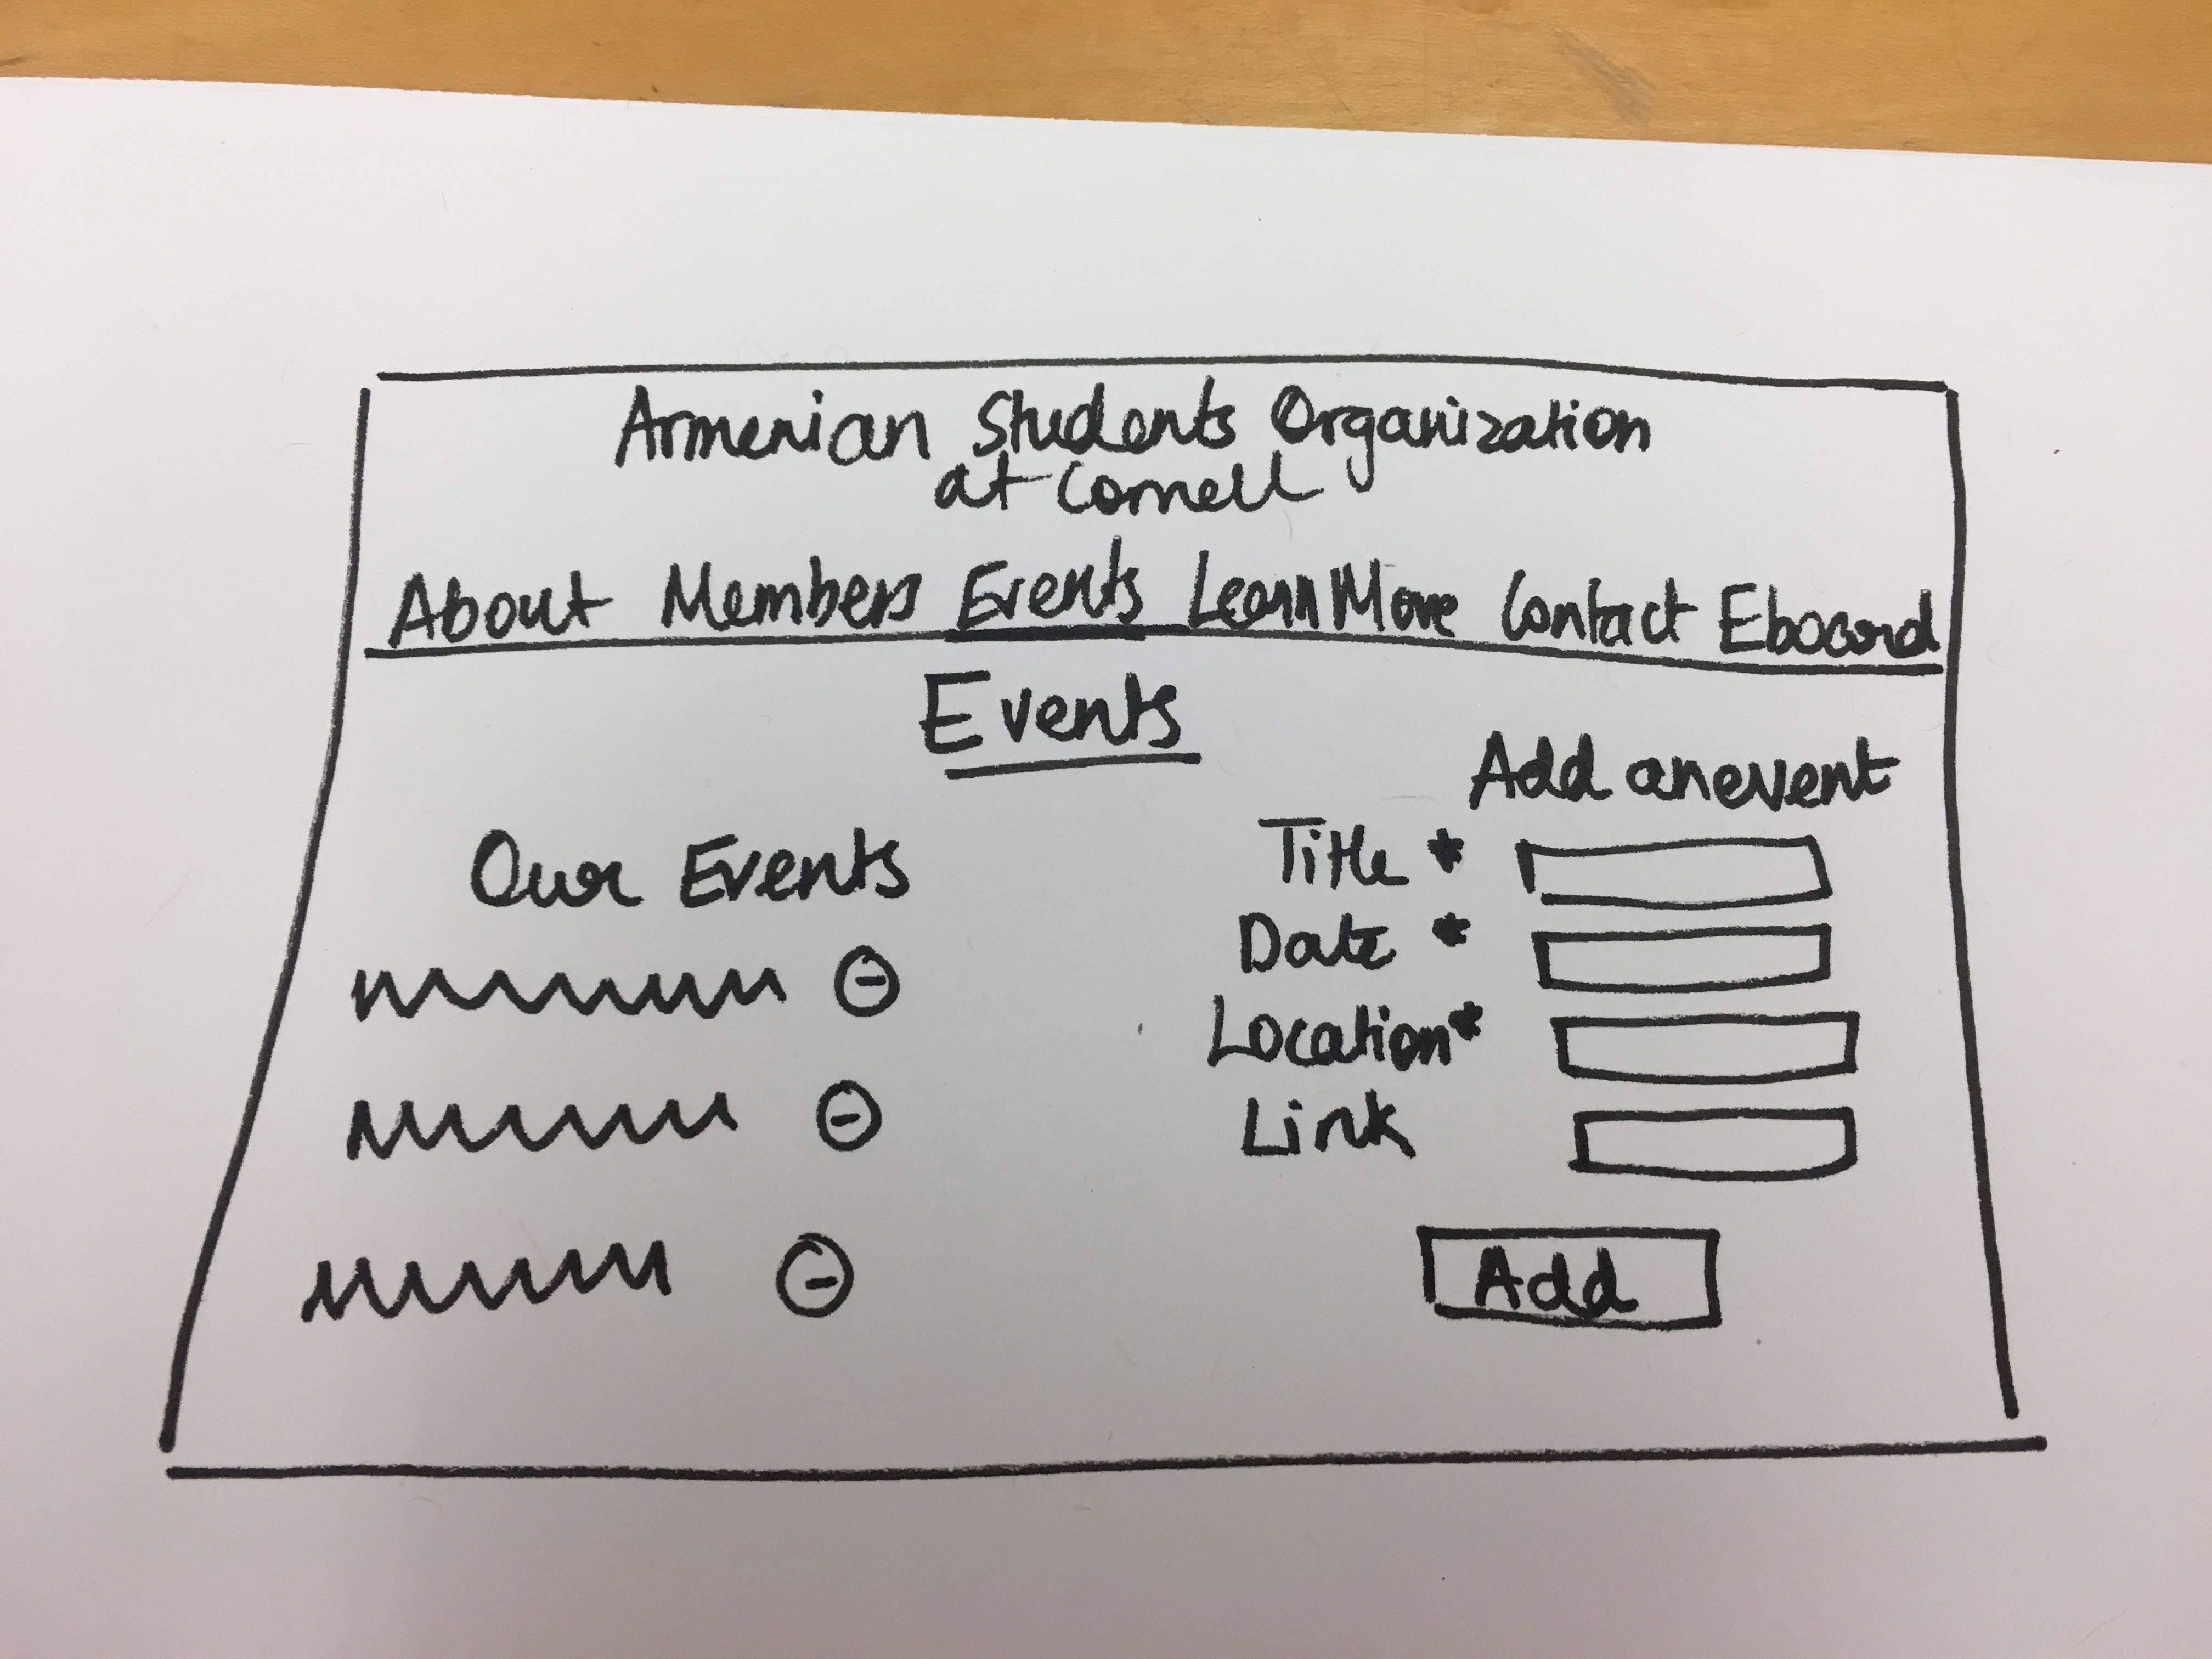 Armenian Students Organization
at Cornell
About Members Events Learn More Contact Eboard
Events
Add an event
Our Events
Title *
Date *
Location*
Link
Add